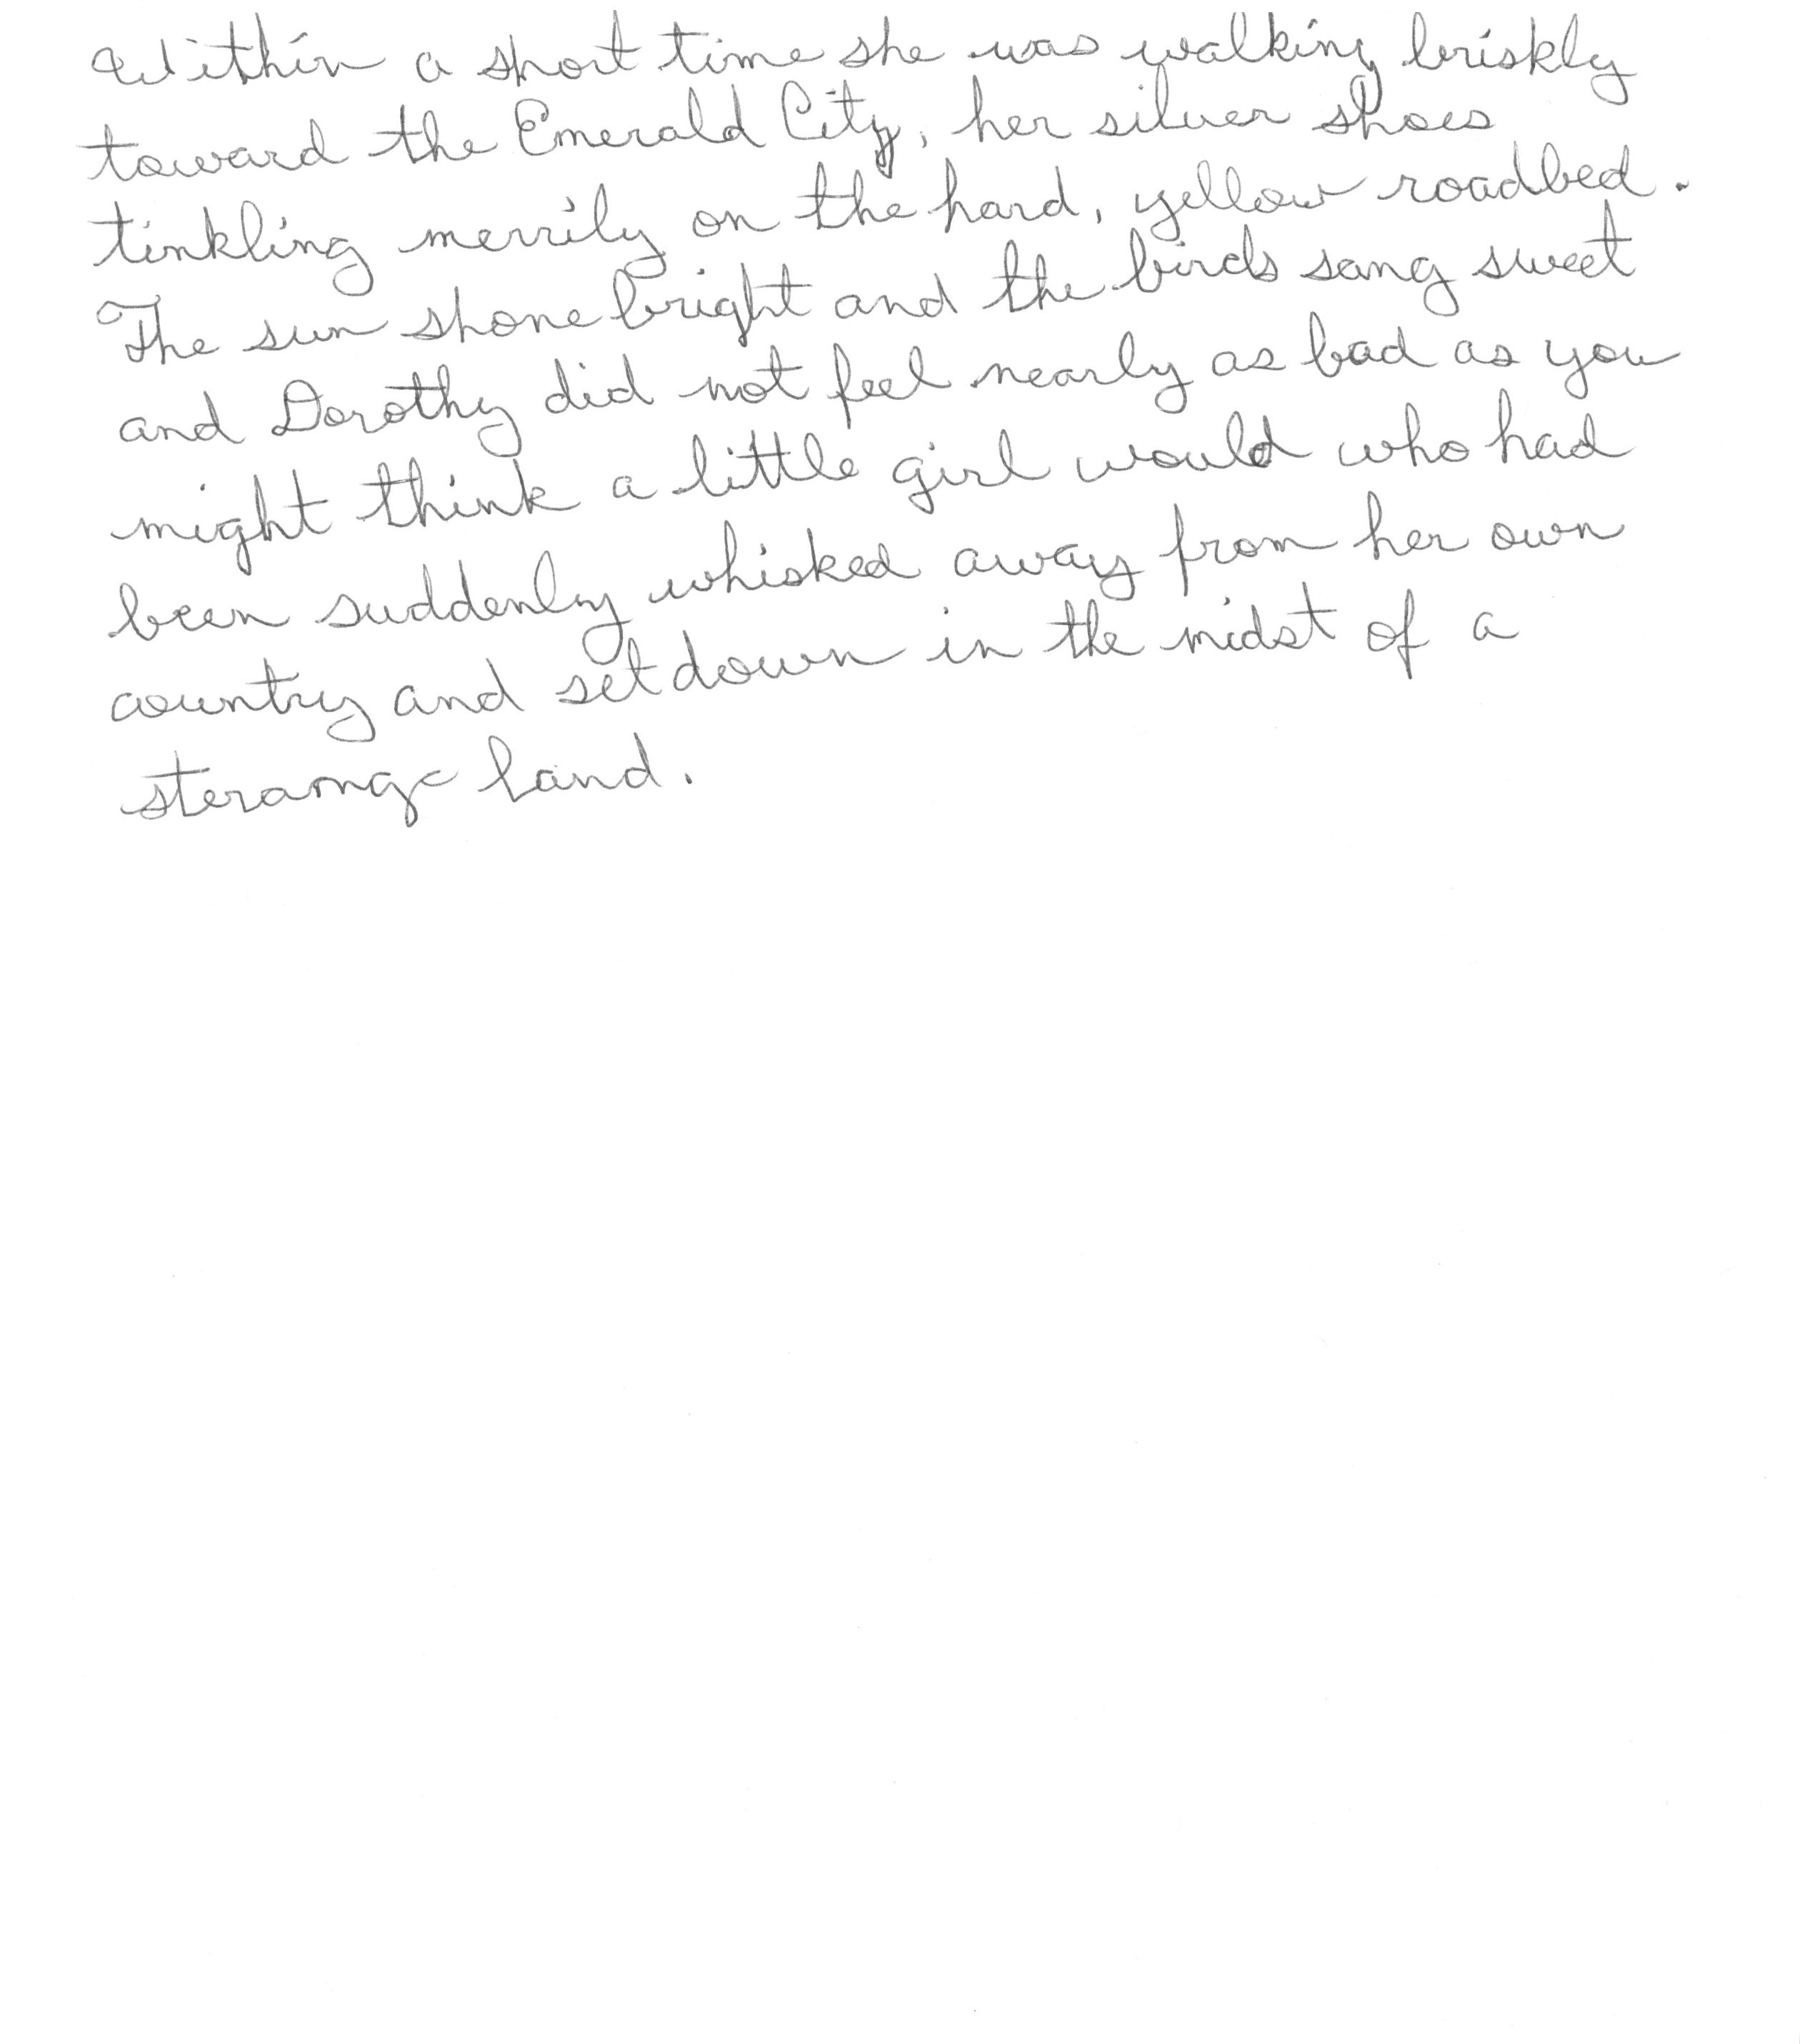 Within a short time she was walking briskly
toward the Emerald City, her silver shoes
tinkling merrily on the hard, yellow roadbed.
The sun shone bright and the birds sang sweet
and Dorothy did not feel nearly as bad as you
might think a little girl would who had
been suddenly whisked away from her own
country and set down in the midst of a
sterange land.